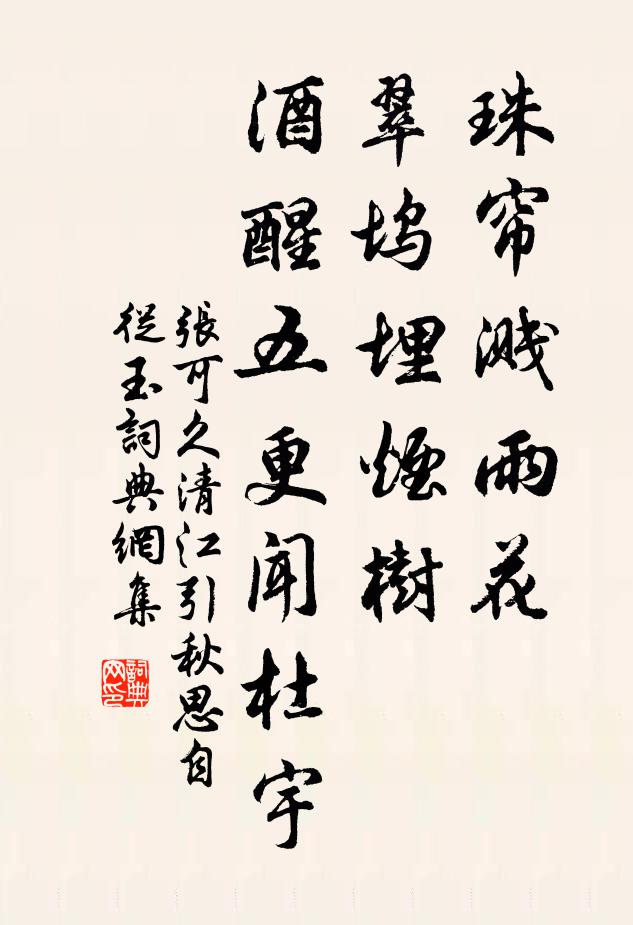 珠帘溅雨花
翠坞埋煙樹
酒醒五更闻杜宇
張可久清江引秋思自
從玉詞典網集
詞典网印